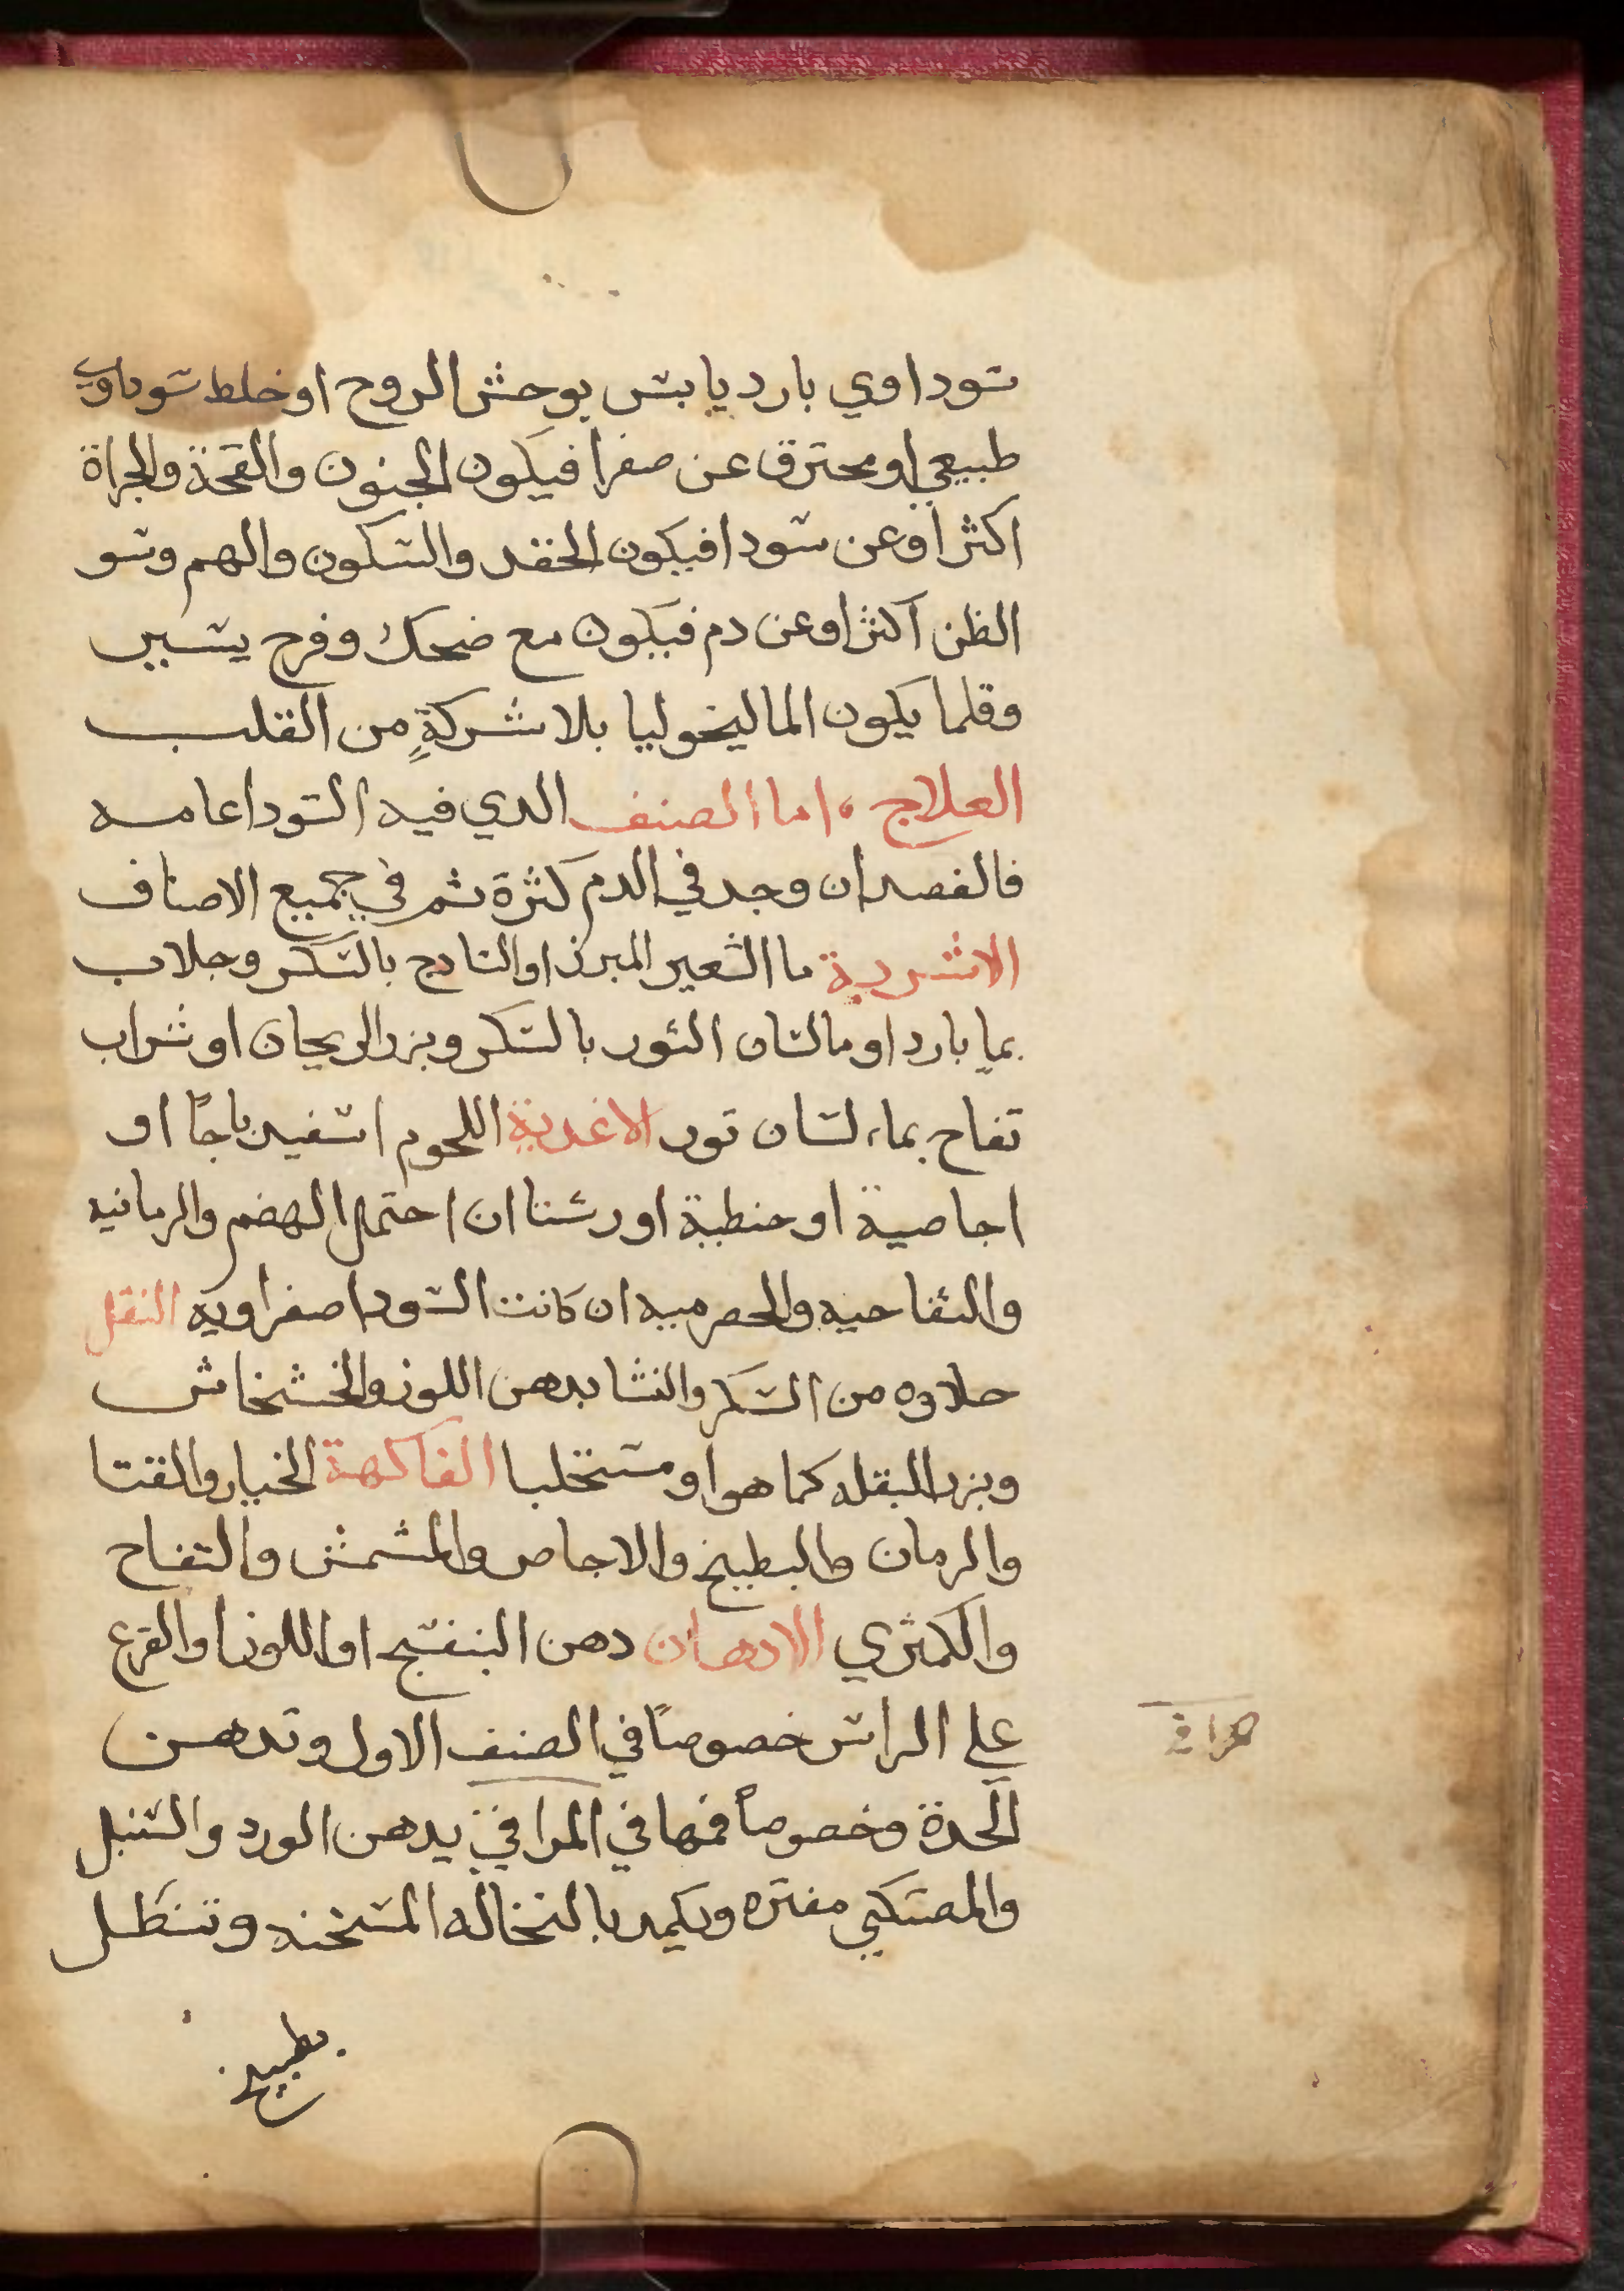 سوداوي بارد يابس يوحش الروح او خلط سوداوي
طبيعي او محترق عن صفرا فيكون الجنون والقحة والجراة
اكثر او عن سودا فيكون الحقد والسكون والهم وسو
الظن اكثر او عن دم فيكون مع ضحك وفرح يسير
وقلما يكون الماليخوليا بلا شركةٍ من القلب
العلاج اما الصنف الدي فيه السودا عامه
فالفصد ان وجد في الدم كثرة ثم في جميع الاصناف
الاشربة ما الشعير المبزر او السادج بالسكر وجلاب
بماٍ بارد او ما لسان الثور بالسكر وبزر الريحان او شراب
تفاح بماء لسان تور الاغدية اللحوم اسفيدباجاً او
اجاصية او حنطية او رشتا ان احتمل الهضم والرمانيه
والتفاحيه والحصرميه ان كانت السودا صفراويه النقل
حلاوه من السكر والنشا بدهن اللوز والخشخاش
وبزر البقله كما هو او مستحلبا الفاكهة الخيار والقتا
والرمان والبطيخ والاجاص والمشمش والتفاح
والكمثري الادهان دهن البنفسج او اللوز او القرع
علي الراس خصوصاً في الصنف الاول وتدهن
المعدة وخصوصاً فمها في المراقي بدهن الورد والسنبل
والمصتكي مفتره ويكمد بالنخاله المسخنه وتنطل
بطبيخ